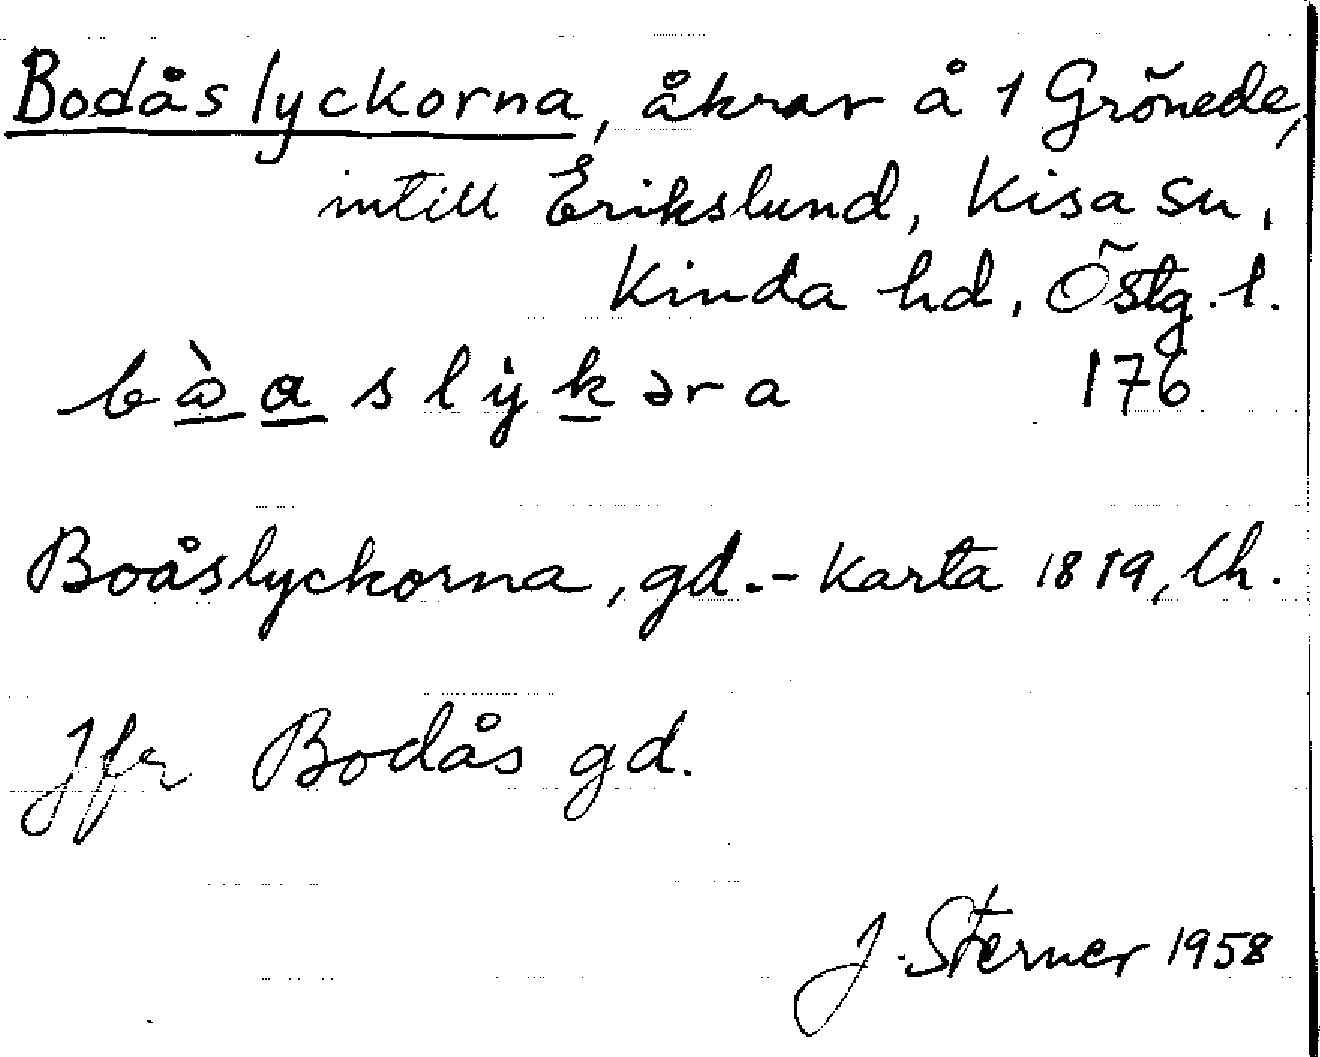 Bodåslyckorna, åkrar å 1 Grönede,
intill Erikslund, Kisa sn,
Kinda hd, Östg. l.
bò̲a̲slỳk̲əra 176
Boåslyckorna, gd. - Karta 1819, lh.
Jfr Bodås gd.
J. Sterner 1958